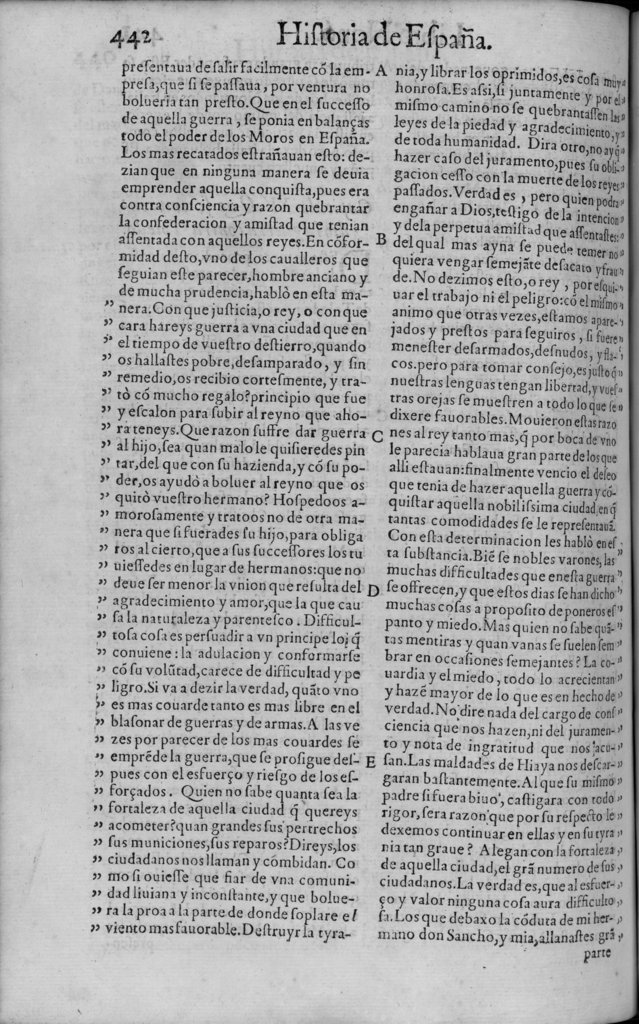 442 Historia de España.
presentaua de salir facilmente cõ la em-
presa, que si se passaua, por ventura no
bolueria tan presto. Que en el successo
de aquella guerra, se ponia en balanças
todo el poder de los Moros en España.
Los mas recatados estrañauan esto: de-
zian que en ninguna manera se deuia
emprender aquella conquista, pues era
contra consciencia y razon quebrantar
la confederacion y amistad que tenian
assentada con aquellos reyes. En cõfor-
midad desto, vno de los caualleros que
seguian este parecer, hombre anciano y
de mucha prudencia, hablò en esta ma-
” nera. Con que justicia, o rey, o con que
” cara hareys guerra a vna ciudad que en
” el tiempo de vuestro destierro, quando
” os hallastes pobre, desamparado, y sin
” remedio, os recibio cortesmente, y tra-
” tò cõ mucho regalo? principio que fue
” y escalon para subir al reyno que aho-
” ra teneys. Que razon suffre dar guerra
” al hijo, sea quan malo le quisieredes pin
” tar, del que con su hazienda, y cõ su po-
” der, os ayudò a boluer al reyno que os
” quitò vuestro hermano? Hospedoos a-
” morosamente y tratoos no de otra ma-
” nera que si fuerades su hijo, para obliga
” ros al cierto, que a sus successores los tu
” uiessedes en lugar de hermanos: que no
” deue ser menor la vnion que resulta del
” agradecimiento y amor, que la que cau
” sa la naturaleza y parentesco. Difficul-
” tosa cosa es persuadir a vn principe lo q̃
” conuiene: la adulacion y conformarse
” cõ su volũtad, carece de difficultad y pe
” ligro. Si va a dezir la verdad, quãto vno
” es mas couarde tanto es mas libre en el
” blasonar de guerras y de armas. A las ve
” zes por parecer de los mas couardes se
” emprẽde la guerra, que se prosigue des-
” pues con el esfuerço y riesgo de los es-
” forçados. Quien no sabe quanta sea la
” fortaleza de aquella ciudad q̃ quereys
” acometer? quan grandes sus pertrechos
” sus municiones, sus reparos? Direys, los
” ciudadanos nos llaman y cõmbidan. Co
” mo si ouiesse que fiar de vna comuni-
” dad liuiana y inconstante, y que bolue-
” ra la proa a la parte de donde soplare el
” viento mas fauorable. Destruyr la tyra-
A nia, y librar los oprimidos, es cosa muy
honrosa. Es assi, si juntamente y por el
mismo camino no se quebrantassen las
leyes de la piedad y agradecimiento, y
de toda humanidad. Dira otro, no ay q̃
hazer caso del juramento, pues su obli-
gacion cesso con la muerte de los reyes
passados. Verdad es, pero quien podra
engañar a Dios, testigo de la intencion
y de la perpetua amistad que assentastes:
B del qual mas ayna se puede temer no
quiera vengar semejãte desacato y frau
de. No dezimos esto, o rey, por esqui-
uar el trabajo ni el peligro: cõ el mismo
animo que otras vezes, estamos apare-
jados y prestos para seguiros, si fuere
menester desarmados, desnudos, y fla-
cos. pero para tomar consejo, es justo q̃
nuestras lenguas tengan libertad, y vues
tras orejas se muestren a todo lo que se
dixere fauorables. Mouieron estas razo
C nes al rey tanto mas, q̃ por boca de vno
le parecia hablaua gran parte de los que
alli estauan: finalmente vencio el deseo
que tenia de hazer aquella guerra y cõ-
quistar aquella nobilissima ciudad, en q̃
tantas comodidades se le representauã.
Con esta determinacion les hablò en es
ta substancia. Biẽ se nobles varones, las ”
muchas difficultades que en esta guerra ”
D se offrecen, y que estos dias se han dicho ”
muchas cosas a proposito de poneros es ”
panto y miedo. Mas quien no sabe quã- ”
tas mentiras y quan vanas se suelen sem ”
brar en occasiones semejantes? La co- ”
uardia y el miedo, todo lo acrecientan ”
y hazẽ mayor de lo que es en hecho de ”
verdad. No dire nada del cargo de cons ”
ciencia que nos hazen, ni del juramen- ”
to y nota de ingratitud que nos acu- ”
E san. Las maldades de Hiaya nos descar- ”
garan bastantemente. Al que su mismo ”
padre si fuera biuo, castigara con todo ”
rigor, sera razon que por su respecto le ”
dexemos continuar en ellas y en su tyra ”
nia tan graue? Alegan con la fortaleza ”
de aquella ciudad, el grã numero de sus ”
ciudadanos. La verdad es, que al esfuer- ”
ço y valor ninguna cosa aura difficulto ”
sa. Los que debaxo la cõduta de mi her- ”
mano don Sancho, y mia, allanastes grã ”
parte